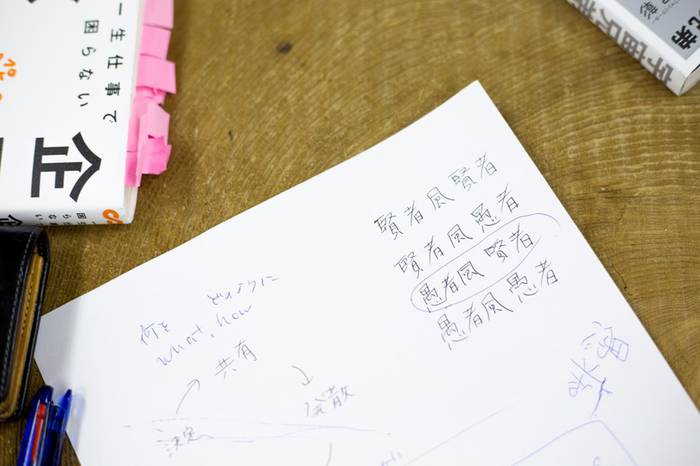 一生仕事で
困らない
企
企
困らない
宇宙兄弟
賢者風賢者
賢者風愚者
愚者風賢者
愚者風愚者
何を どのように
what, how
共有
発散
決定